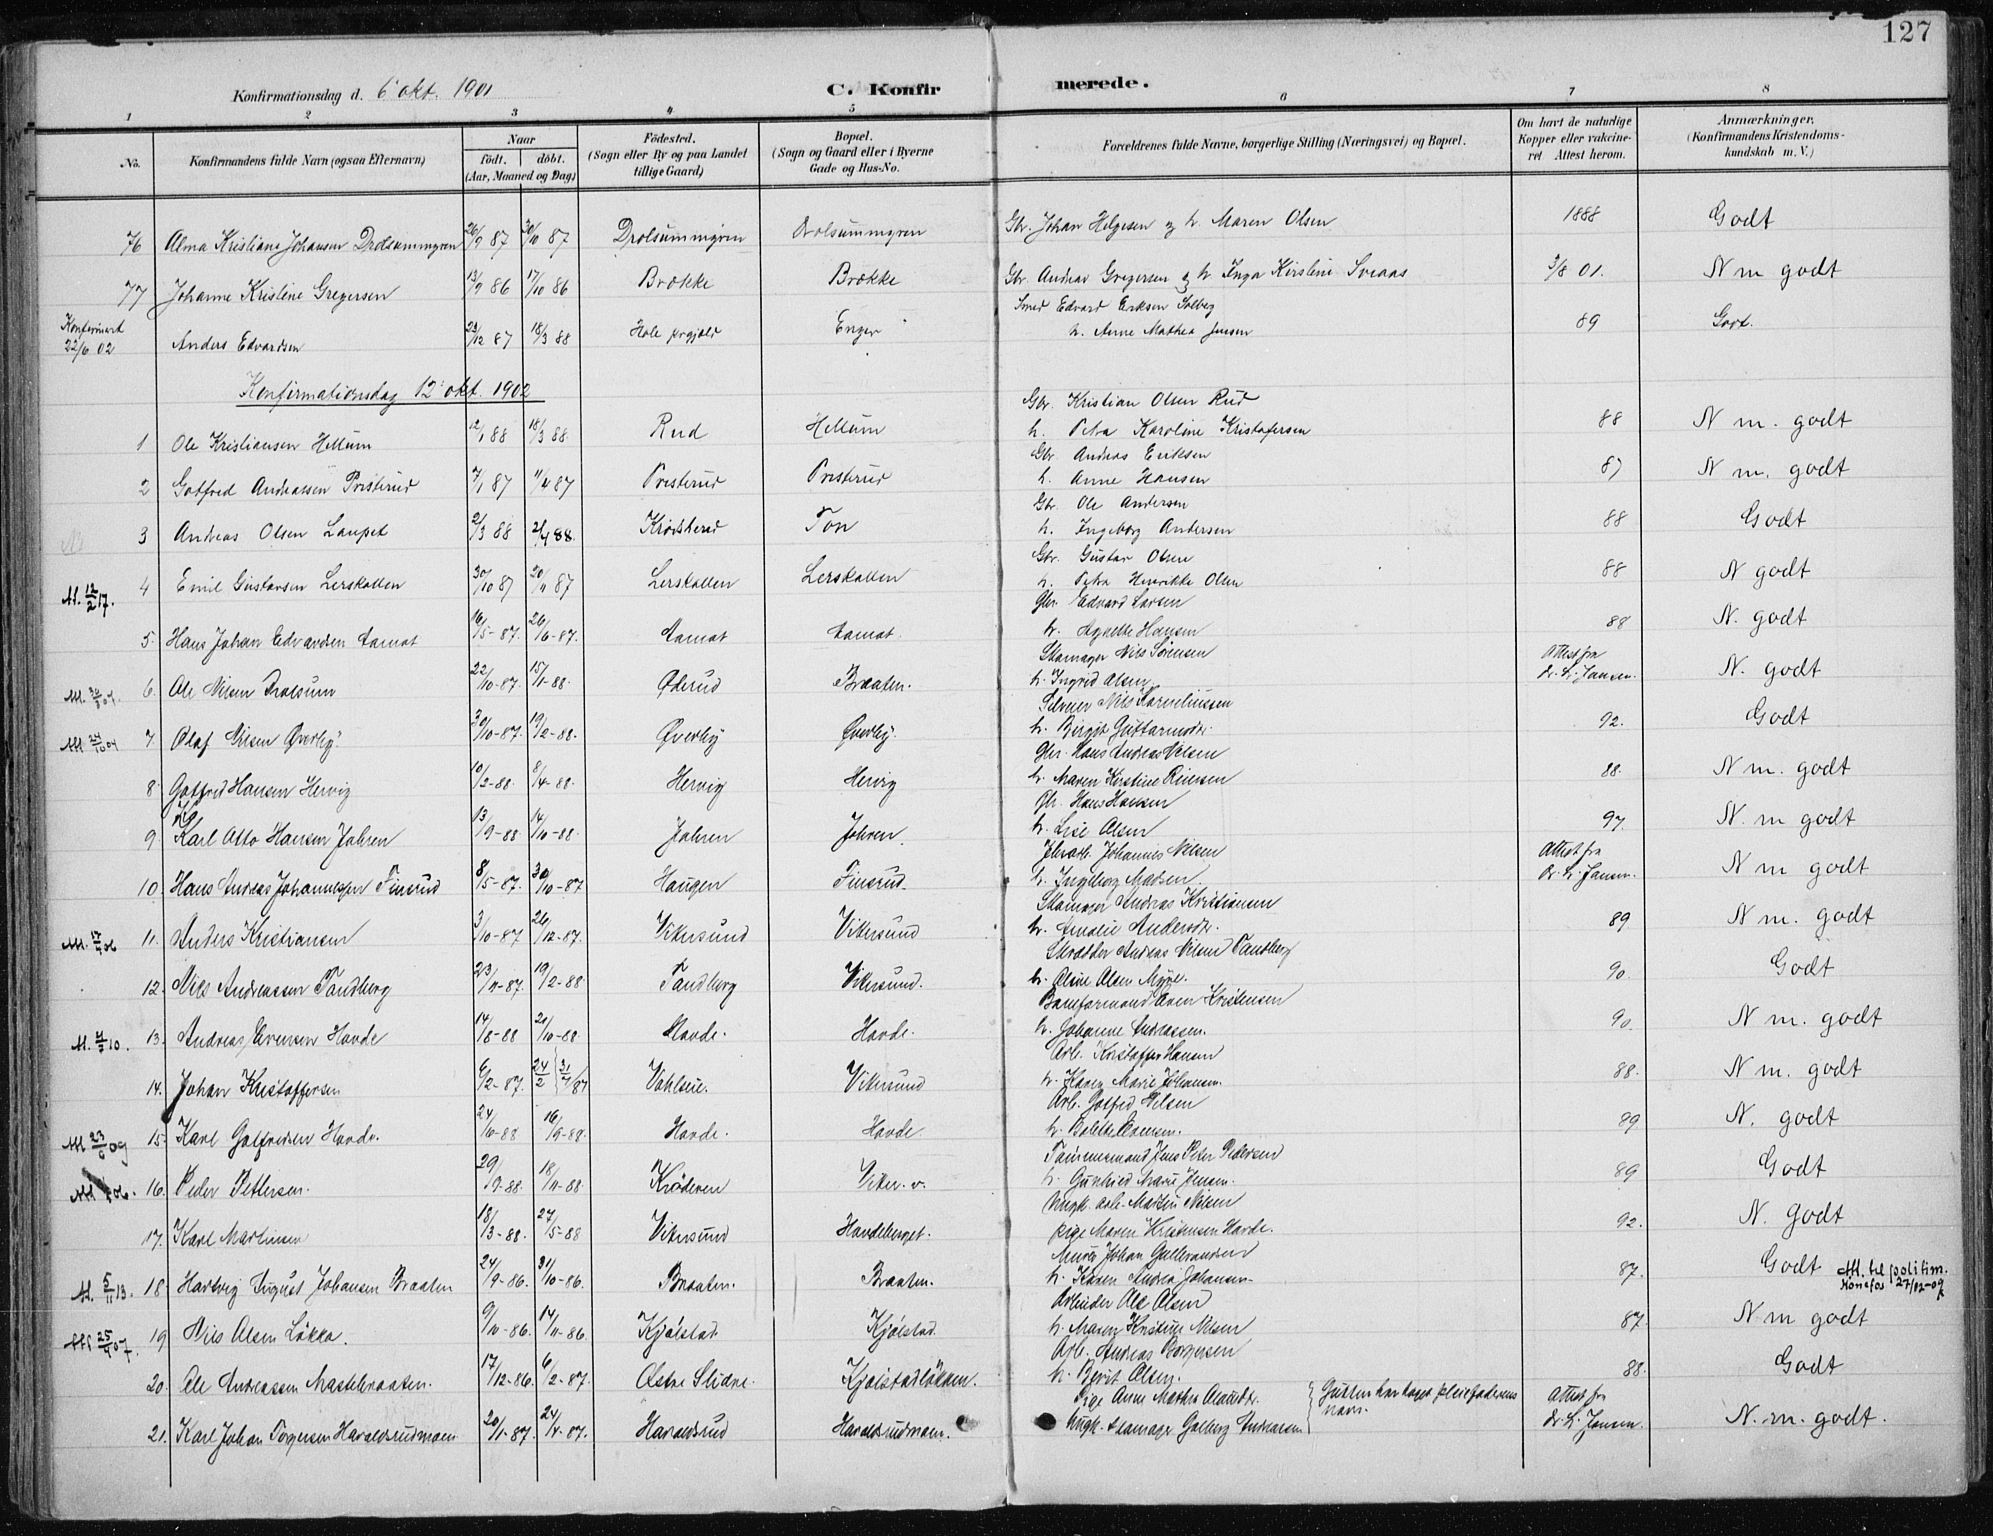 127
Konfirmationsdag d. 6 okt. 1901
C. Konfirmerede.
1 2 3 4 5 6 7 8
No.
Konfirmandens fulde Navn (ogsaa Efternavn)
Naar født. døbt. (Aar, Maaned og Dag)
Fødested. (Sogn eller By og paa Landet tillige Gaard)
Bopæl. (Sogn og Gaard eller i Byerne Gade og Hus-No.
Forældrenes fulde Navne, borgerlige Stilling (Næringsvei) og Bopæl.
Om havt de naturlige Kopper eller vakcineret Attest herom.
Anmærkninger. (Konfirmandens Kristendomskundskab m. V.)
76 Alma Kristiane Johansen Drolsummyren 26/9 87 30/10 87 Drolsummyren Drolsummyren Gbr. Johan Helgesen og h. Maren Olsen 1888 Godt
77 Johanne Kristine Gregersen 13/9 86 17/10 86 Brække Brække Gbr. Andreas Gregersen og h. Inga Kirstine Sveaas 3/8 01. N m godt
Konfirmert 22/6 02 Anders Edvardsen 23/12 87 18/3 88 Hole prgjæld Enger Smed Edvard Eriksen Solberg
h. Anne Mathea Jensen 89 Godt.
Konfirmationsdag 12 okt. 1902
Gbr. Kristian Olsen Rud
1 Ole Kristiansen Hellum 12/1 88 18/3 88 Rud Hellum h. Petra Karoline Kristofersen 88 N m. godt
Gbr. Andreas Eriksen
2 Gotfred Andreassen Presterud 7/1 87 11/4 87 Presterud Presterud h. Anne Hansen 87 N m. godt
Gbr. Ole Andersen
3 Andreas Olsen Laupet 2/3 88 2/4 88. Krødsherad Ton h. Ingeborg Andersen 88 Godt
Gbr. Gustav Olsen
M. 12/2 17. 4 Emil Gustavsen Lerskallen 30/10 87 20/11 87 Lerskallen Lerskallen h. Petra Henrikke Olsen 88 N godt
Gbr. Edvard Larsen
5. Hans Johan Edvardsen Aamot 16/5-87. 26/6-87. Aamot Aamot. h. Agnette Hansen 88 N. godt
Skomager Nils Sørensen
6. Ole Nilsen Drolsum 22/10-87. 15/1-88. Øderud Braaten. h. Ingrid Olsen Attest fra Dr. L. Jansen. N. godt
Nils Korneliussen
M 24/10 04 7 Olaf Nilsen Øverby. 30/10-87. 19/2-88. Øverby Øverby. h. Birgit Guttormsdr. 92. Godt
Gbr. Hans Andreas Nilsen
8. Gotfred Hansen Hervig 10/2-88. 8/4-88. Hervig Hervig h. Maren Kirstine Riersen 88. N m. godt
Gbr. Hans Hansen
9. Karl Otto Hansen Johren 13/9-88 14/10-88. Johren Johren. h. Lise Olsen 97. N. m godt
Johannes Nilsen
10. Hans Andreas Johannessen Finsrud 8/5-87. 30/10-87 Haugen Finsrud. h. Ingeborg Madsen. Attest fra Dr. L. Jansen. N m godt
Skomager Andreas Kristiansen
11. Anders Kristiansen 3/10-87. 26/12-87. Vikersund Vikersund h. Amalie Andersdr. 89 N m. godt
Skrædder Andreas Nilsen Tandberg
12. Nils Andreassen Tandberg 23/11-87. 19/2-88 Tandberg Vikersund. h. Oline Olsen Myre. 90. Godt
Baneformand Even Kristensen
13. Andreas Evensen Hovde 14/8-88 21/10-88. Hovde. Hovde. h. Johanne Andreassen. 90. N m. godt
Arb. Kristoffer Hansen
14. Johan Kristoffersen 6/2-87. 24/2 31/7/87 Vikersund h. Karen Marie Johansen. 88. N m. godt
Arb. Gotfred Nilsen
M 23/6 09 15. Karl Gotfredsen Hovde. 24/6-88 16/9-88. Hovde. Hovde h. Bolette Evensen. 89 N. godt
Jens Peter Pedersen
16. Peder Pettersen. 29/9-88. 18/11-88 Krøderen Viker. v. h. Gunhild Marie Jensen. 89 Godt
Ungk. arb. Martin Nilsen
17. Karl Martinsen 18/3-88. 27/5-88 Vikersund Hovdeberget. pige Maren Kristensen Hovde. 92. N. godt
Murer Johan Gulbrandsen
M. 5/11 13. 18 Hartvig August Johansen Braaten 24/9-86. 31/10-86. Braaten. Braaten. h. Karen Andrea Johansen. 87. Godt Att. til politim. Hønefos 27/02-09
Arbeider Ole Olsen
Att 25/9 07. 19 Nils Olsen Løkka. 9/10-86. 14/11-86. Kjølstad Kjølstad. h. Maren Kristine Nilsen 87. N m godt
Arb. Andreas Borgersen
20. Ole Andreassen Mastebraaten. 17/12-86. 6/2-87. Østre Slidre. Kjølstadløkken. h. Berit Olsen. 88. Godt
Pige Anne Mathea Olausdr. Gutten har taget pleiefaderens navn. Attest fra
21. Karl Johan Torgersen Haraldsrudmoen 20/1-87. 24/4-87. Haraldsrud Haraldsrudmoen. Ungk. skomager Golberg Dr. L. Jansen. N. m. godt.